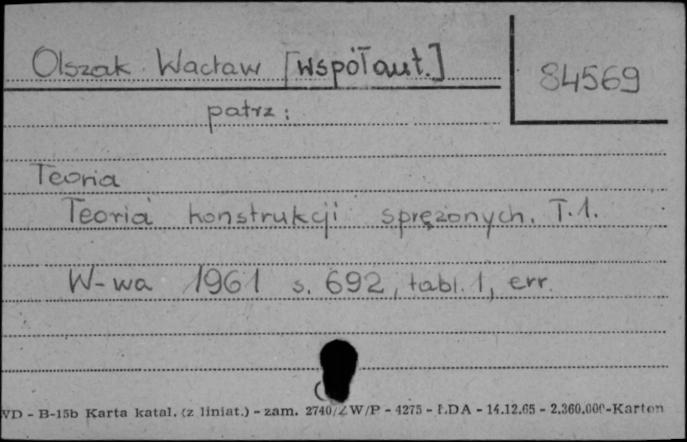 Olszak Wacław [współaut.]
84569
patrz:
Teoria
Teoria konstrukcji sprężonych. T.1.
W-wa 1961 s. 692, tabl. 1, err.
WD - B-15b Karta katal. (z liniat.) - zam. 2740/Z W/P - 4275 - LDA - 14.12.65 - 2.360.000-Karton